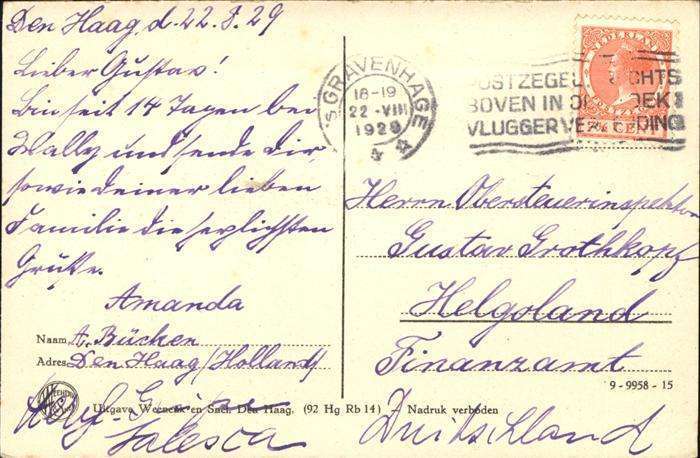 Den Haag, d. 22.8.29
Lieber Gustav!
Bin seit 14 Tagen bei
Wally und sende dir,
sowie deiner lieben
Familie die herzlichsten
Grüße.
Amanda
Naam, A. Bücken
Adres: Den Haag (Holland)
Valesca
's GRAVENHAGE
16-19
22 -VIII
1929
POSTZEGEL RECHTS
BOVEN IN DE HOEK
VLUGGER VERZENDING
NEDERLAND
CENT
Herrn Obersteuerinspektor
Gustav Grothkopf
Helgoland
Finanzamt
9-9958-15
Uitgave Weenenk en Snel, Den Haag. (92 Hg Rb 14) Nadruk verboden
Duitschland